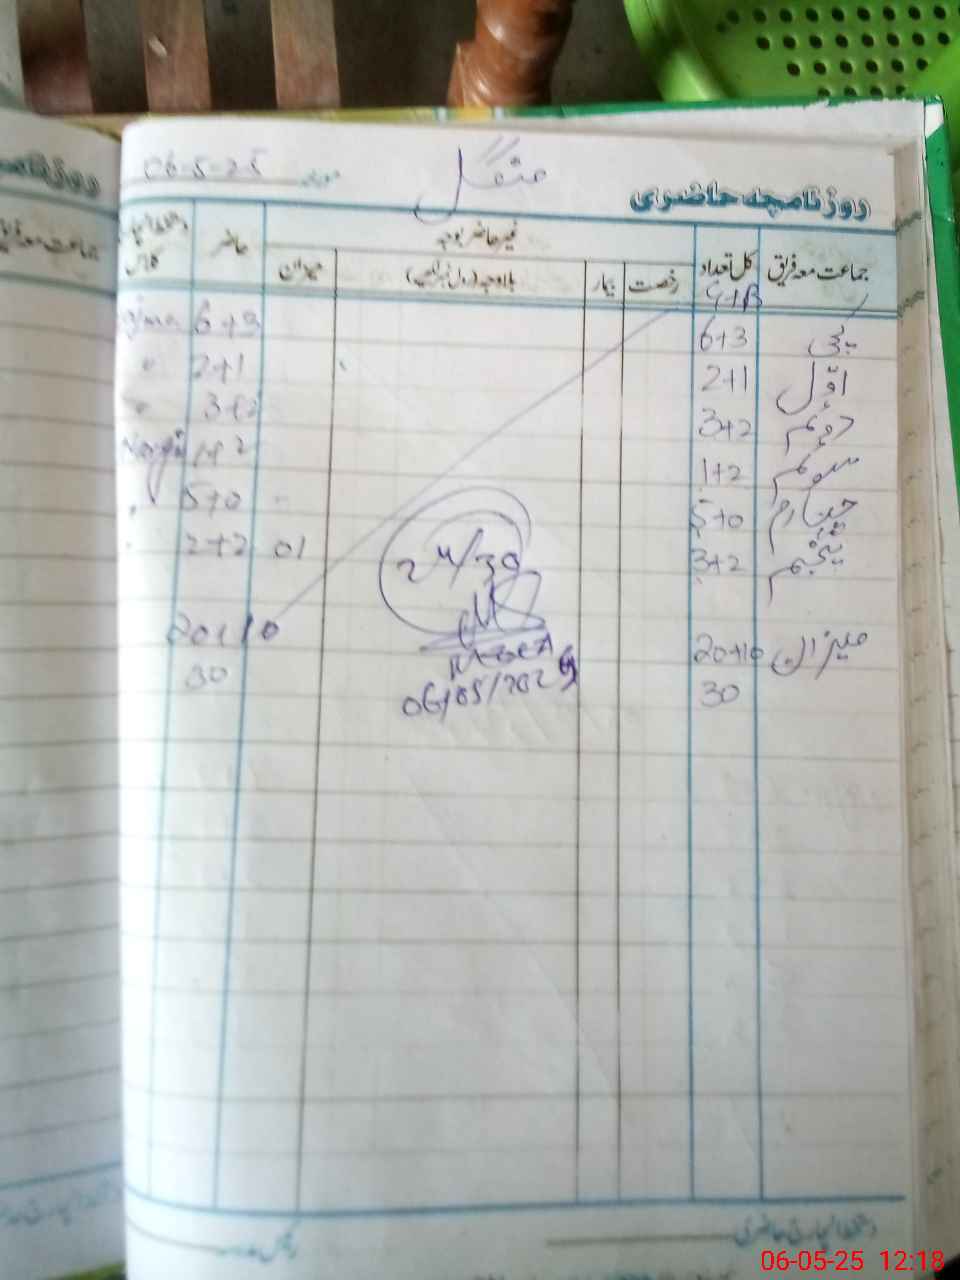 منگل
روزنامچہ حاضری
مورخہ 06-5-25
جماعت معہ فریق کل تعداد غیر حاضر بوجہ حاضر
رخصت بیمار بلاوجہ (رول نمبر لکھیں) میزان
G+B
6+3 6+3
اوّل 2+1 2+1
دوئم 3+2 3+2
سوئم 1+2 1+2
چہارم 5+0 - 5+0
پنجم 3+2 01 2+2
میزان 20+10 20+10
30 30
06/05/2025
دستخط انچارج حاضری
06-05-25 12:18
روزنامچہ
جماعت معہ فریق